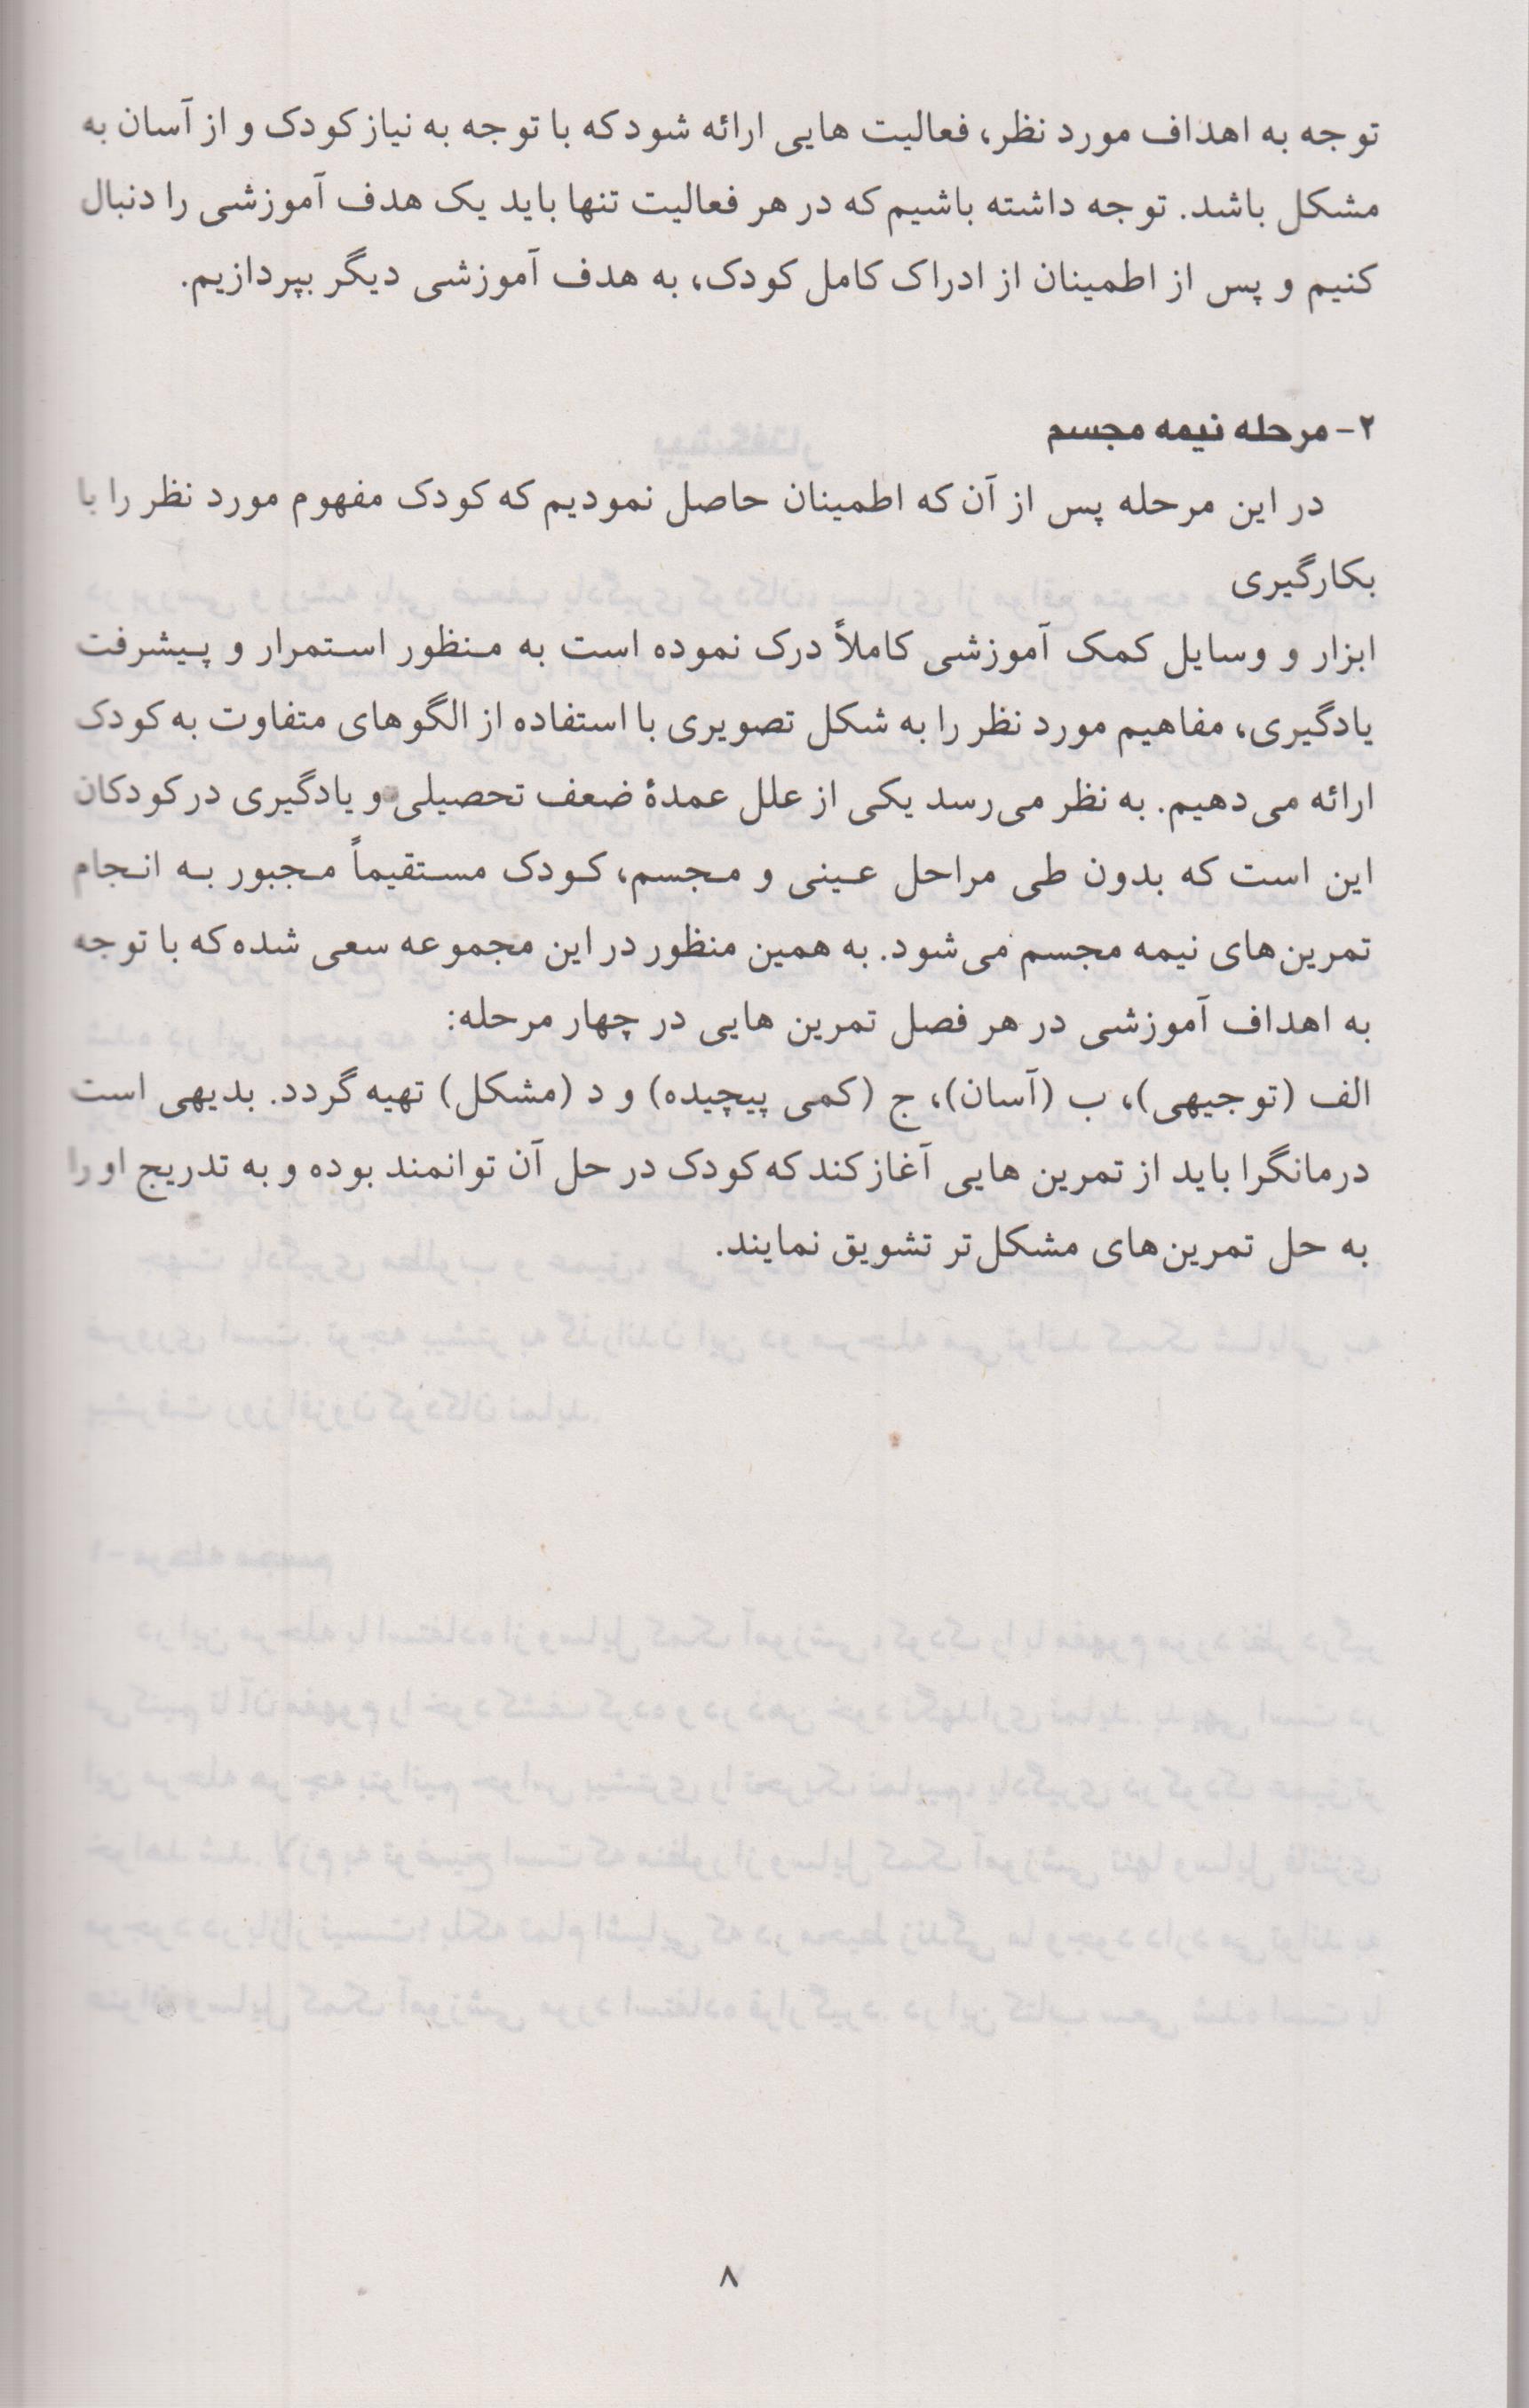 توجه به اهداف مورد نظر، فعالیت هایی ارائه شود که با توجه به نیاز کودک و از آسان به
مشکل باشد. توجه داشته باشیم که در هر فعالیت تنها باید یک هدف آموزشی را دنبال
کنیم و پس از اطمینان از ادراک کامل کودک، به هدف آموزشی دیگر بپردازیم.
۲- مرحله نیمه مجسم
در این مرحله پس از آن که اطمینان حاصل نمودیم که کودک مفهوم مورد نظر را با
بکارگیری
ابزار و وسایل کمک آموزشی کاملاً درک نموده است به منظور استمرار و پیشرفت
یادگیری، مفاهیم مورد نظر را به شکل تصویری با استفاده از الگوهای متفاوت به کودک
ارائه می‌دهیم. به نظر می‌رسد یکی از علل عمدهٔ ضعف تحصیلی و یادگیری در کودکان
این است که بدون طی مراحل عینی و مجسم، کودک مستقیماً مجبور به انجام
تمرین‌های نیمه مجسم می‌شود. به همین منظور در این مجموعه سعی شده که با توجه
به اهداف آموزشی در هر فصل تمرین هایی در چهار مرحله:
الف (توجیهی)، ب (آسان)، ج (کمی پیچیده) و د (مشکل) تهیه گردد. بدیهی است
درمانگرا باید از تمرین هایی آغاز کند که کودک در حل آن توانمند بوده و به تدریج او را
به حل تمرین‌های مشکل‌تر تشویق نمایند.
۸